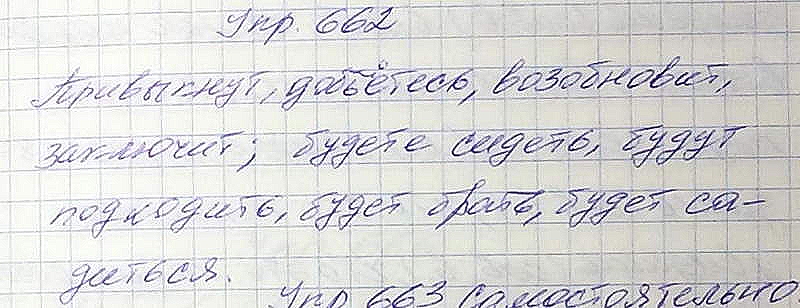 Упр. 662
Привыкнут, добьётесь, возобновит,
заключит; будете сидеть, будут
подходить, будет брать, будет са-
диться.
Упр 663 самостоятельно